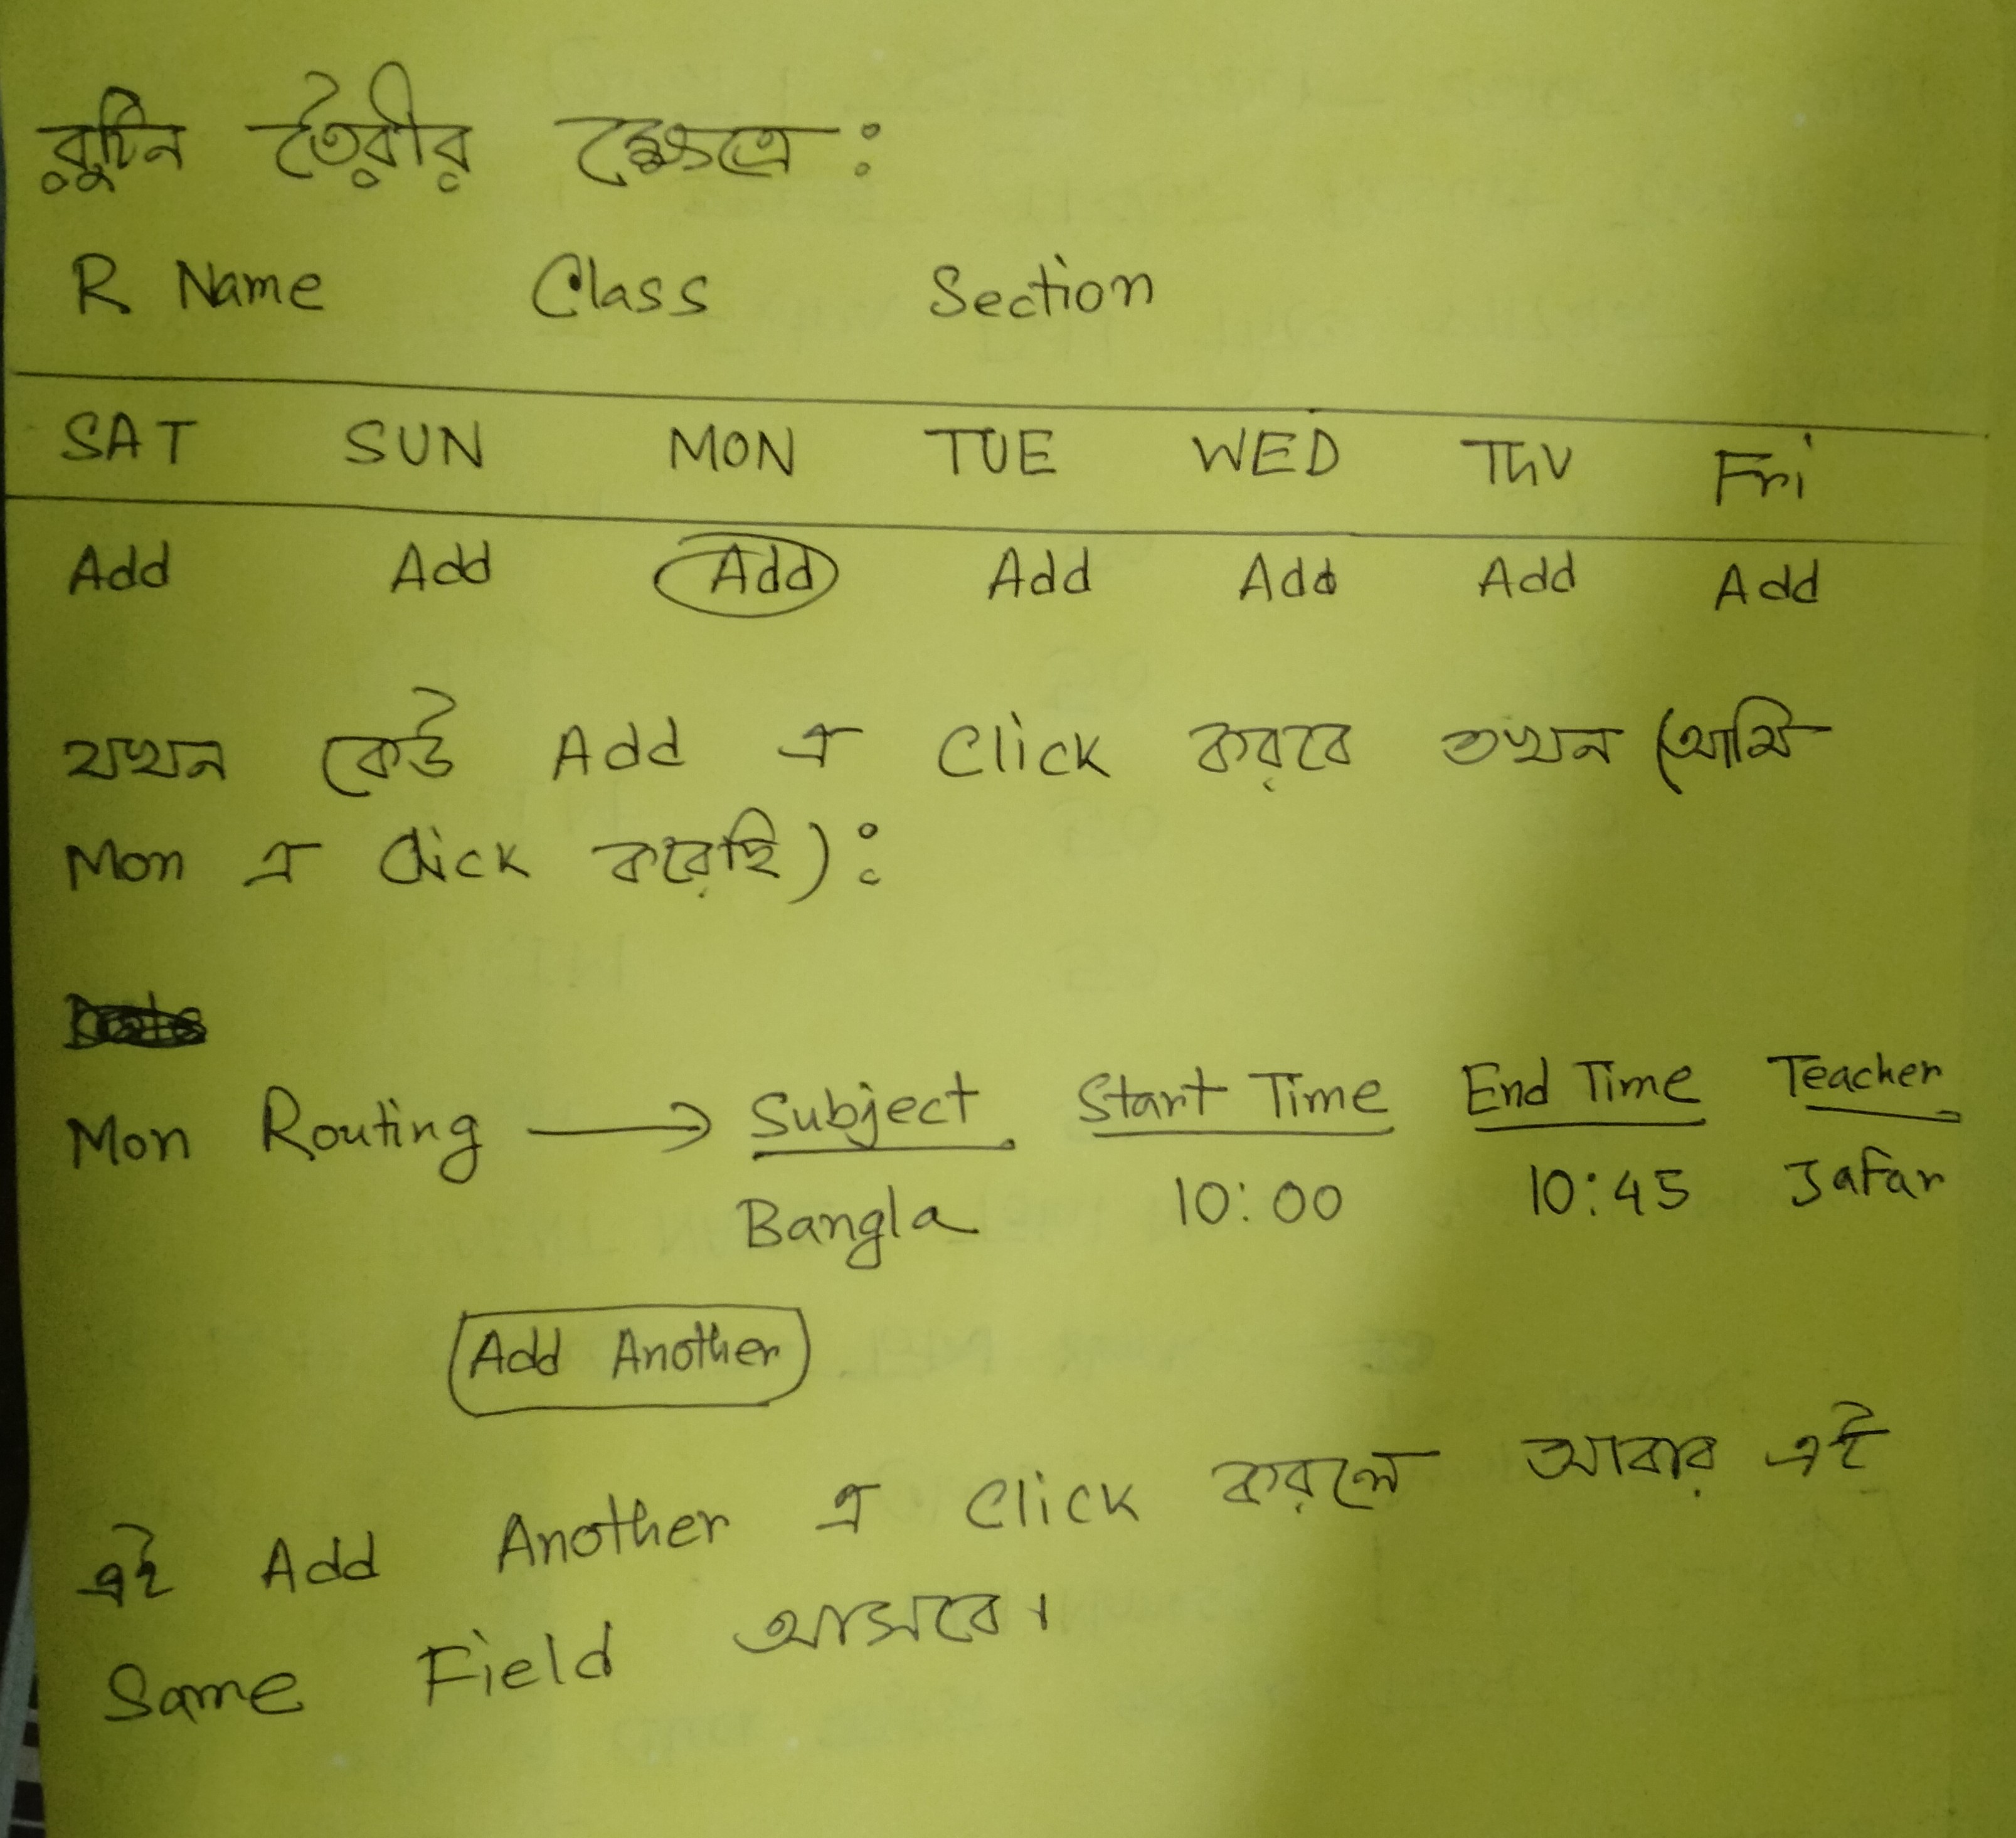 রুটিন তৈরীর ক্ষেত্রে :
R Name Class Section
SAT SUN MON TUE WED THU Fri
Add Add Add Add Add Add Add
যখন কেউ Add এ Click করবে তখন (আমি
Mon এ Click করেছি) :
Mon Routing → Subject Start Time End Time Teacher
Bangla 10:00 10:45 Jafar
Add Another
এই Add Another এ Click করলে আবার এই
Same Field আসবে।